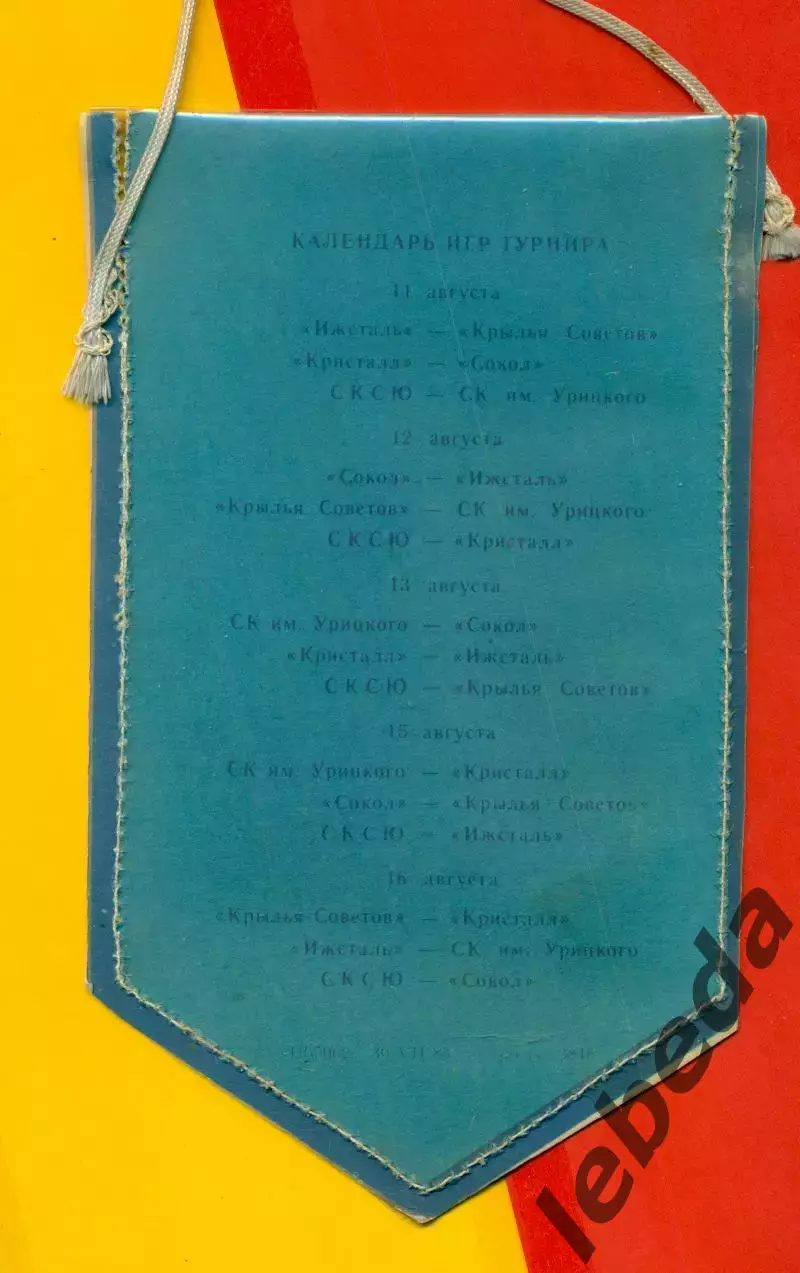 КАЛЕНДАРЬ ИГР ТУРНИРА
11 августа
«Ижсталь» — «Крылья Советов»
«Кристалл» — «Сокол»
СКСЮ — СК им. Урицкого
12 августа
«Сокол» — «Ижсталь»
«Крылья Советов» — СК им. Урицкого
СКСЮ — «Кристалл»
13 августа
СК им. Урицкого — «Сокол»
«Кристалл» — «Ижсталь»
СКСЮ — «Крылья Советов»
15 августа
СК им. Урицкого — «Кристалл»
«Сокол» — «Крылья Советов»
СКСЮ — «Ижсталь»
16 августа
«Крылья Советов» — «Кристалл»
«Ижсталь» — СК им. Урицкого
СКСЮ — «Сокол»
lebeda